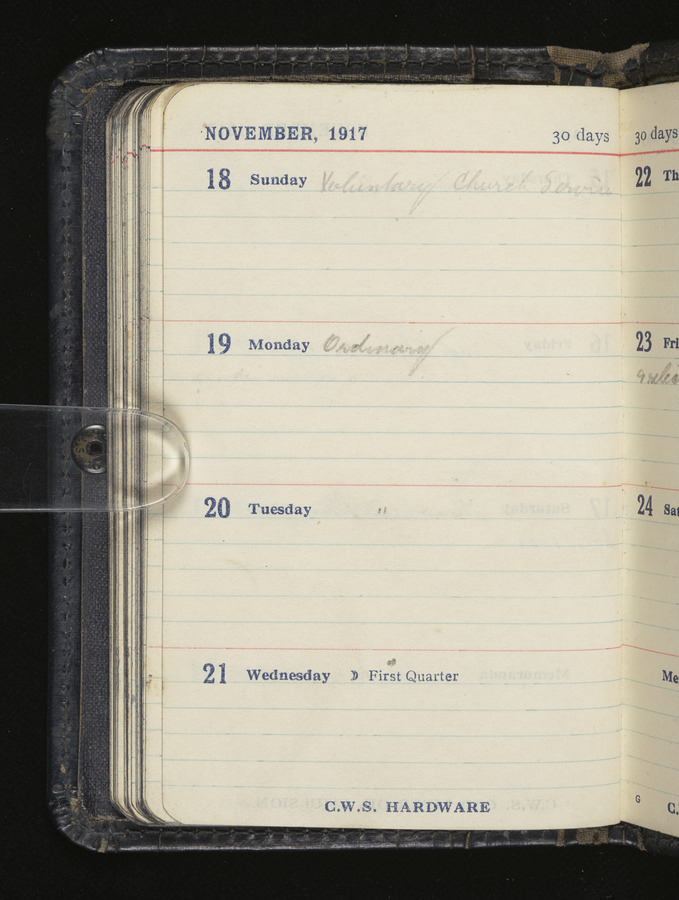 NOVEMBER, 1917 30 days
18 Sunday Voluntary Church Service
19 Monday Ordinary
20 Tuesday "
21 Wednesday ☽ First Quarter
C.W.S. HARDWARE
30 days
22 Th
23 Fri
24 Sat
Me
G C.